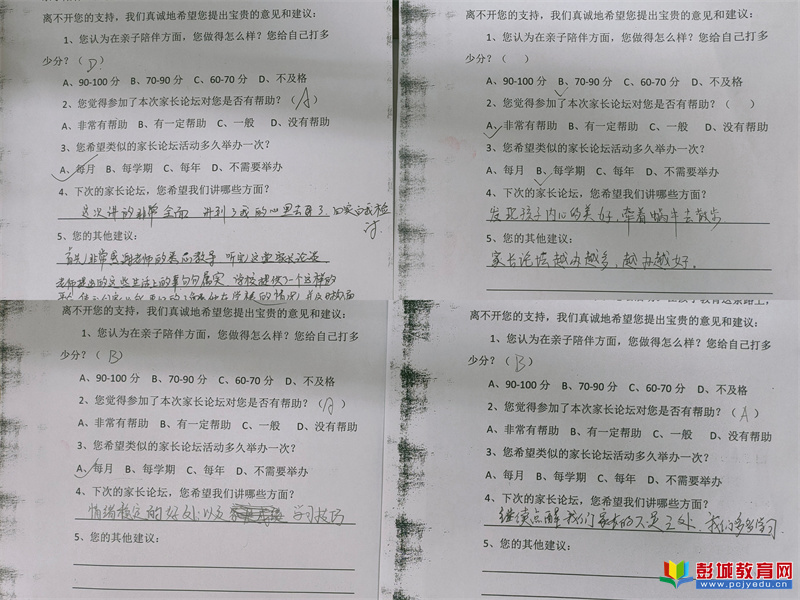 离不开您的支持，我们真诚地希望您提出宝贵的意见和建议：
1、您认为在亲子陪伴方面，您做得怎么样？您给自己打多
少分？（D）
A、90-100分 B、70-90分 C、60-70分 D、不及格
2、您觉得参加了本次家长论坛对您是否有帮助？（A）
A、非常有帮助 B、有一定帮助 C、一般 D、没有帮助
3、您希望类似的家长论坛活动多久举办一次？
A、每月 B、每学期 C、每年 D、不需要举办
4、下次的家长论坛，您希望我们讲哪些方面？
这次讲的非常全面 讲到了我的心里去了
5、您的其他建议：
首先，非常感谢老师的
离不开您的支持，我们真诚地希望您提出宝贵的意见和建议：
1、您认为在亲子陪伴方面，您做得怎么样？您给自己打多
少分？（ ）
A、90-100分 B、70-90分 C、60-70分 D、不及格
2、您觉得参加了本次家长论坛对您是否有帮助？（ ）
A、非常有帮助 B、有一定帮助 C、一般 D、没有帮助
3、您希望类似的家长论坛活动多久举办一次？
A、每月 B、每学期 C、每年 D、不需要举办
4、下次的家长论坛，您希望我们讲哪些方面？
发现孩子内心的美好，牵着蜗牛去散步
5、您的其他建议：
家长论坛越办越多，越办越好。
离不开您的支持，我们真诚地希望您提出宝贵的意见和建议：
1、您认为在亲子陪伴方面，您做得怎么样？您给自己打多
少分？（B）
A、90-100分 B、70-90分 C、60-70分 D、不及格
2、您觉得参加了本次家长论坛对您是否有帮助？（A）
A、非常有帮助 B、有一定帮助 C、一般 D、没有帮助
3、您希望类似的家长论坛活动多久举办一次？
A、每月 B、每学期 C、每年 D、不需要举办
4、下次的家长论坛，您希望我们讲哪些方面？
情绪稳定的好处以及 学习技巧
5、您的其他建议：
离不开您的支持，我们真诚地希望您提出宝贵的意见和建议：
1、您认为在亲子陪伴方面，您做得怎么样？您给自己打多
少分？（B）
A、90-100分 B、70-90分 C、60-70分 D、不及格
2、您觉得参加了本次家长论坛对您是否有帮助？（A）
A、非常有帮助 B、有一定帮助 C、一般 D、没有帮助
3、您希望类似的家长论坛活动多久举办一次？
A、每月 B、每学期 C、每年 D、不需要举办
4、下次的家长论坛，您希望我们讲哪些方面？
继续点醒我们家长的不足之处，我们多多学习
5、您的其他建议：
彭城教育网
www.pcjyedu.cn